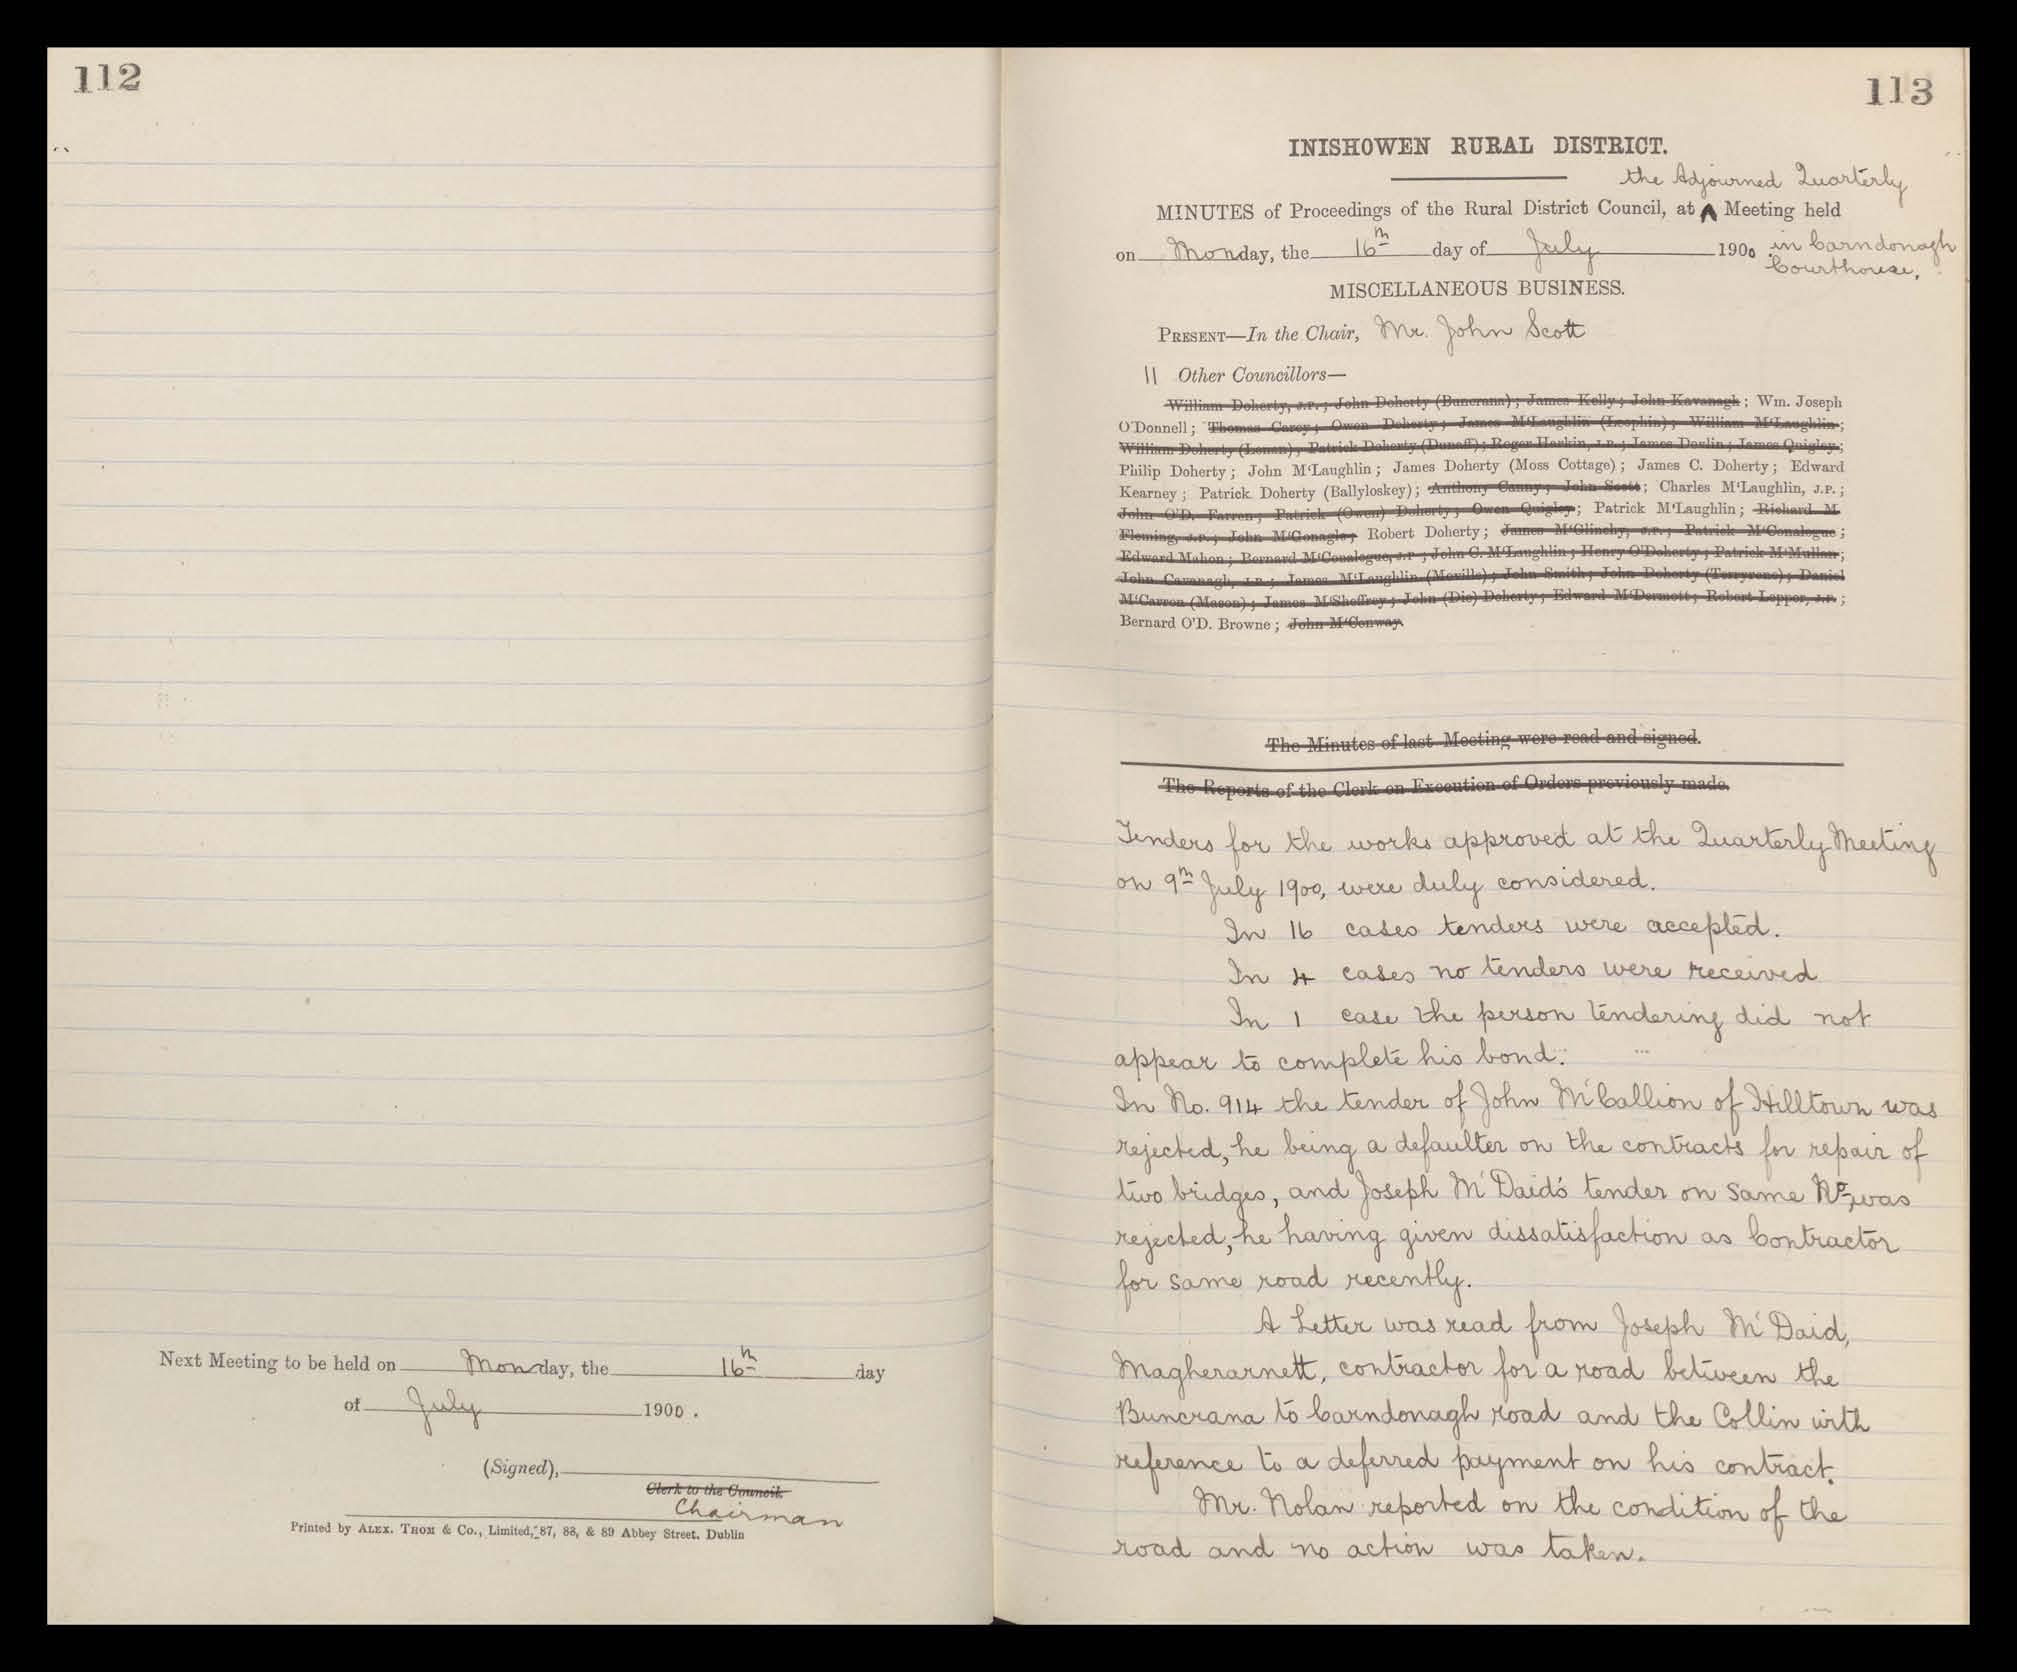 112
Next Meeting to be held on Monday, the 16th day
of July 1900.
(Signed),
Clerk to the Council.
Chairman
Printed by ALEX. THOM & Co., Limited, 87, 88, & 89 Abbey Street, Dublin
113
INISHOWEN RURAL DISTRICT.
the Adjourned Quarterly
MINUTES of Proceedings of the Rural District Council, at ^ Meeting held
on Monday, the 16th day of July 1900 in Carndonagh
Courthouse.
MISCELLANEOUS BUSINESS.
PRESENT—In the Chair, Mr. John Scott
11 Other Councillors—
William Doherty, J.P.; John Doherty (Buncrana); James Kelly; John Kavanagh; Wm. Joseph
O'Donnell; Thomas Carey; Owen Doherty; James M'Laughlin (Leophin); William M'Laughlin;
William Doherty (Lenan); Patrick Doherty (Dunaff); Roger Harkin, J.P.; James Devlin; James Quigley;
Philip Doherty; John M'Laughlin; James Doherty (Moss Cottage); James C. Doherty; Edward
Kearney; Patrick Doherty (Ballyloskey); Anthony Canny; John Scott; Charles M'Laughlin, J.P.;
John O'D. Farren; Patrick (Owen) Doherty; Owen Quigley; Patrick M'Laughlin; Richard M.
Fleming, J.P.; John M'Gonagle; Robert Doherty; James M'Glinchy, J.P.; Patrick M'Conalogue;
Edward Mahon; Bernard M'Conalogue, J.P.; John C. M'Laughlin; Henry O'Doherty; Patrick M'Mullan;
John Cavanagh, J.P.; James M'Laughlin (Moville); John Smith; John Doherty (Terryrone); Daniel
M'Carron (Mason); James M'Sheffrey; John (Die) Doherty; Edward M'Dermott; Robert Lepper, J.P.;
Bernard O'D. Browne; John M'Conway.
The Minutes of last Meeting were read and signed.
The Reports of the Clerk on Execution of Orders previously made.
Tenders for the works approved at the Quarterly Meeting
on 9th July 1900, were duly considered.
In 16 cases tenders were accepted.
In 4 cases no tenders were received
In 1 case the person tendering did not
appear to complete his bond.
In No. 914 the tender of John M'Callion of Hilltown was
rejected, he being a defaulter on the contracts for repair of
two bridges, and Joseph M'Daid's tender on same No. was
rejected, he having given dissatisfaction as Contractor
for same road recently.
A Letter was read from Joseph M'Daid,
Magherarnett, contractor for a road between the
Buncrana to Carndonagh road and the Collin with
reference to a deferred payment on his contract.
Mr. Nolan reported on the condition of the
road and no action was taken.